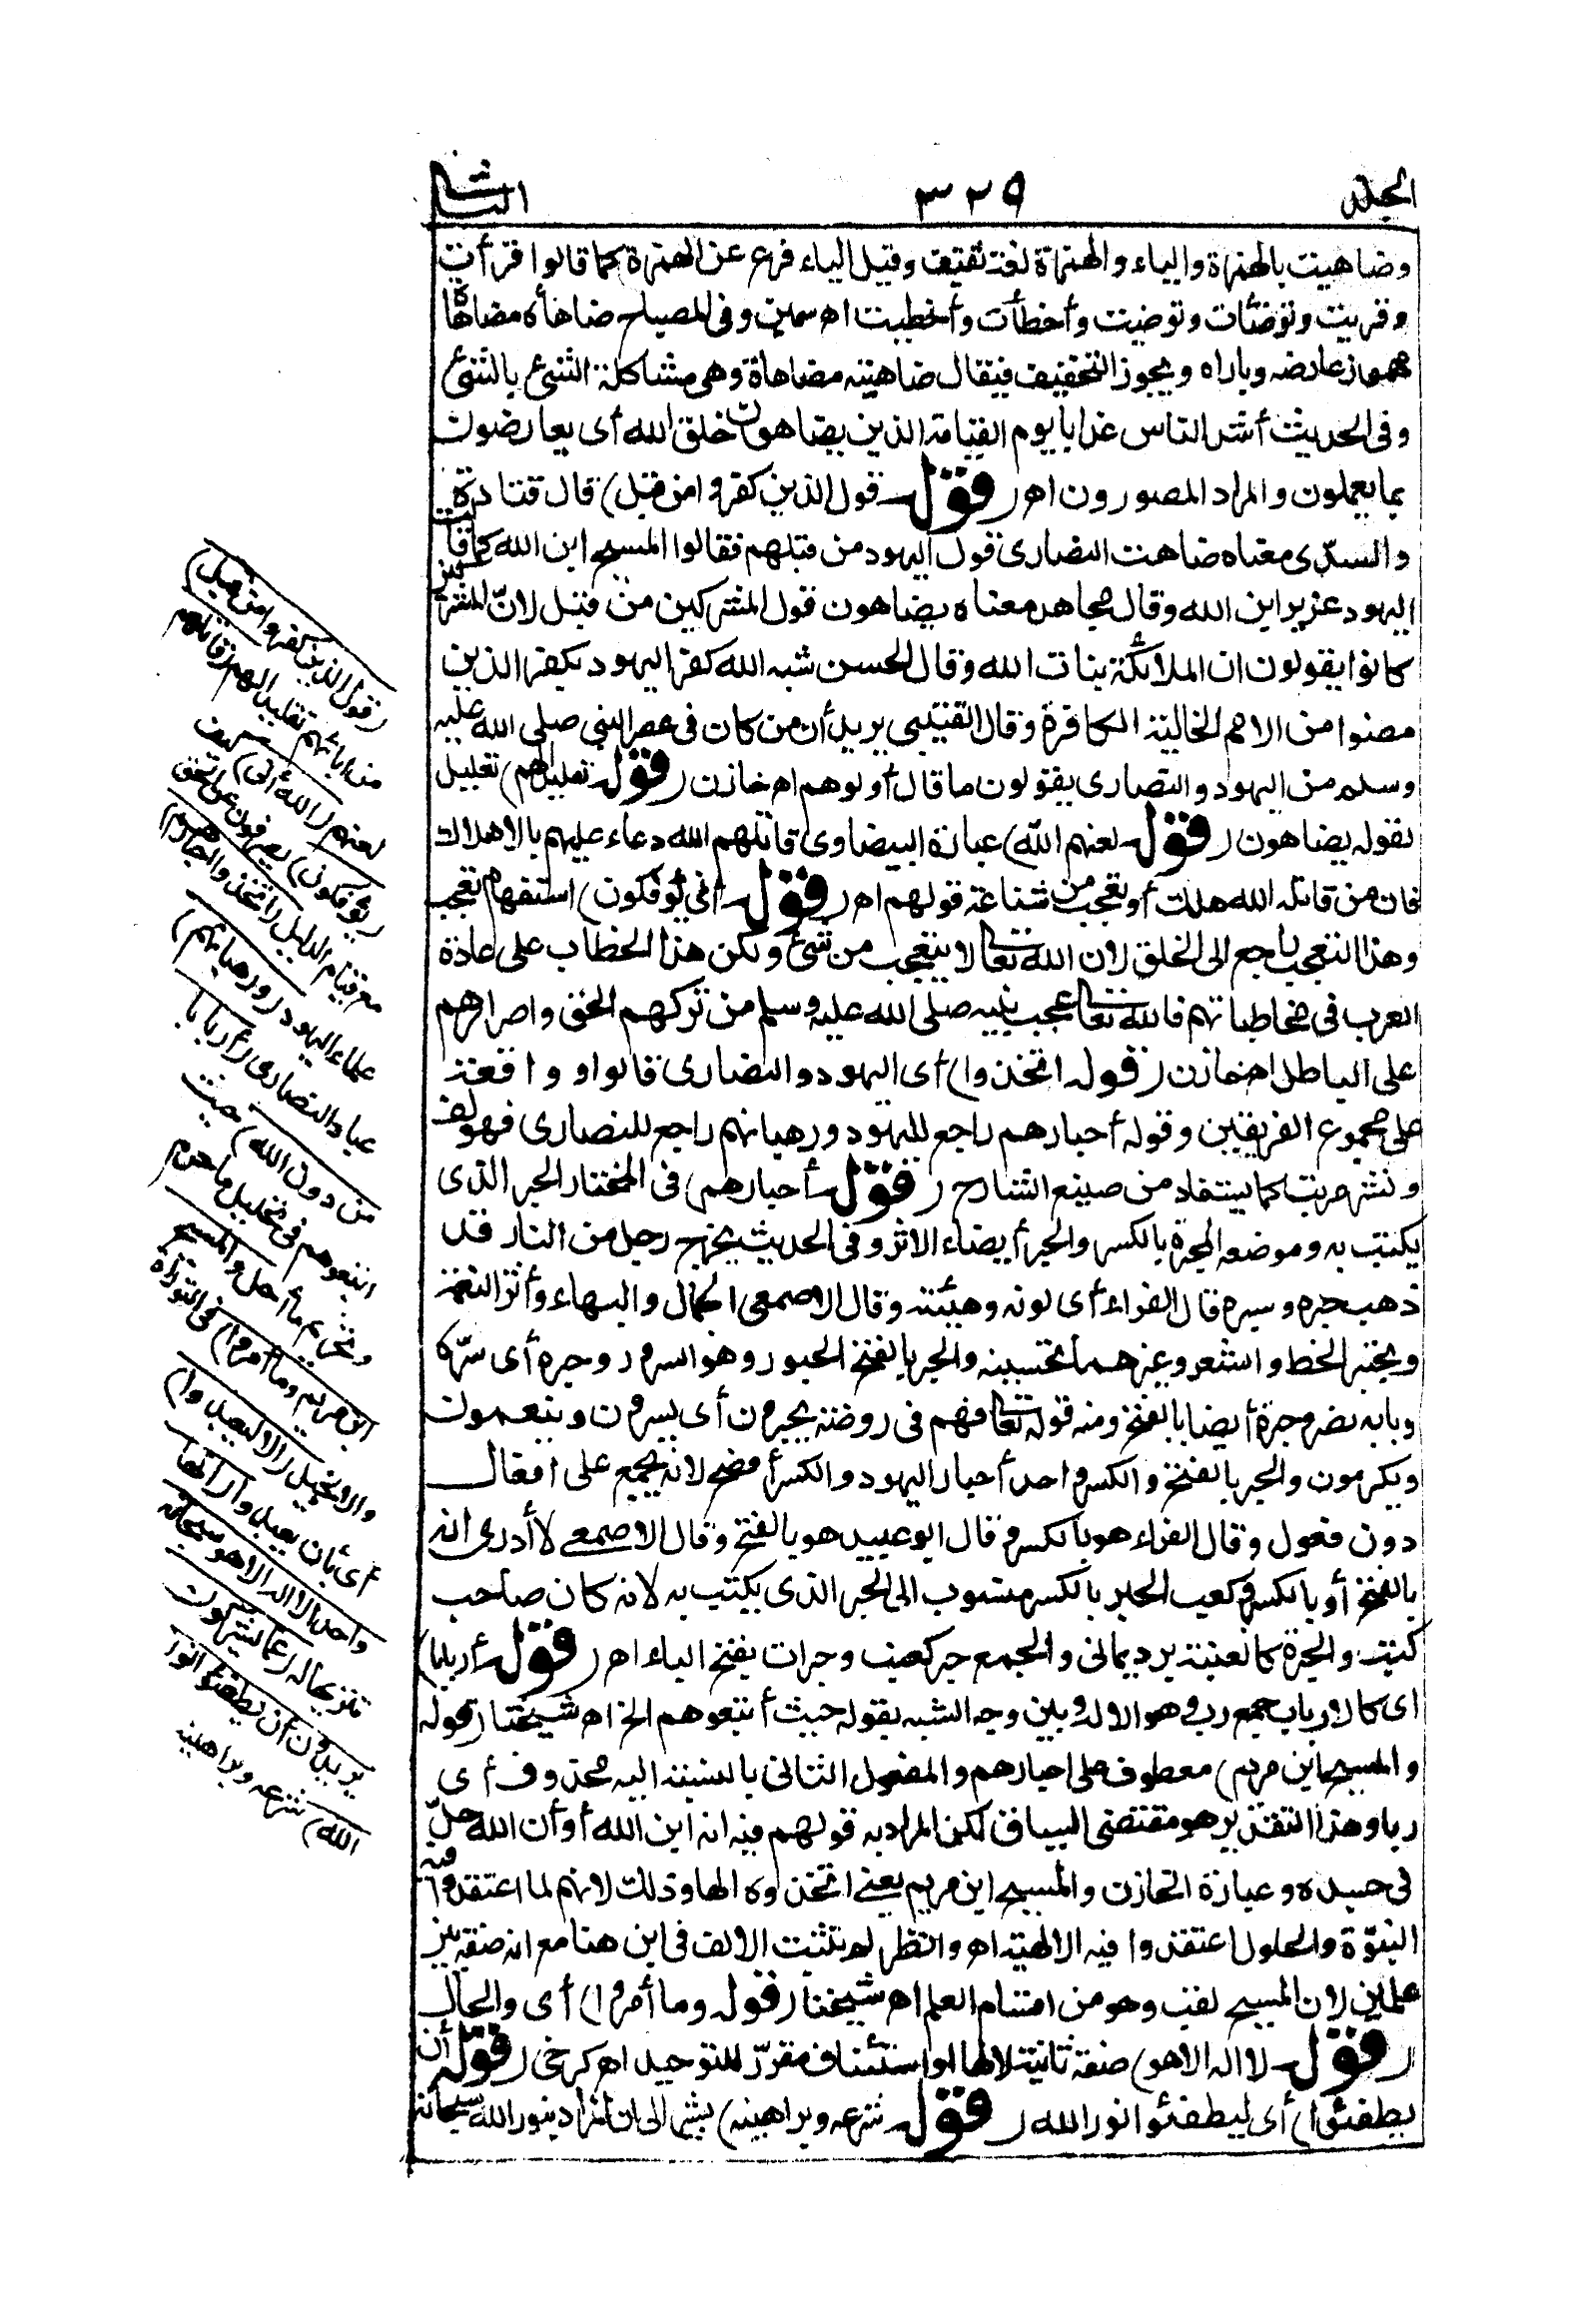 الجلد ٣٢٩ الثانى
وضاهيت بالهمزة والياء والهمزة لغة ثقيف وقيل الياء فرع عن الهمزة كما قالوا قرأت
وقريت وتوضأت وتوضيت وأخطأت وأخطيت اھ سمين وفى المصباح ضاهأه مضاهأة
مهموز عارضه وباراه ويجوز التخفيف فيقال ضاهيته مضاهاة وهى مشاكلة الشئ بالشئ
وفى الحديث أشد الناس عذابا يوم القيامة الذين يضاهون خلق الله أى يعارضون
بما يعملون والمراد المصورون اھ (قوله قول الذين كفروا من قبل) قال قتادة
والسدّى معناه ضاهت النصارى قول اليهود من قبلهم فقالوا المسيح ابن الله كما قالت
اليهود عزير ابن الله وقال مجاهد معناه يضاهون قول المشركين من قبل لانّ المشركين
كانوا يقولون ان الملائكة بنات الله وقال الحسن شبه الله كفر اليهود بكفر الذين
مضوا من الامم الخالية الكافرة وقال القتيبى يريد أن من كان فى عصر النبى صلى الله عليه
وسلم من اليهود والنصارى يقولون ما قال أولوهم اھ خازن (قوله تقليدا لهم) تعليل
لقوله يضاهون (قوله لعنهم الله) عبارة البيضاوى قاتلهم الله دعاء عليهم بالاهلاك
فان من قاتله الله هلك أو تعجب من شناعة قولهم اھ (قوله أنى يؤفكون) استفهام تعجب
وهذا التعجب راجع الى الخلق لان الله تعالى لا يتعجب من شئ ولكن هذا الخطاب على عادة
العرب فى مخاطباتهم فالله تعالى عجب نبيه صلى الله عليه وسلم من تركهم الحق واصرارهم
على الباطل اھ خازن (قوله اتخذوا) أى اليهود والنصارى فالواو واقعة
على مجموع الفريقين وقوله أحبارهم راجع لليهود ورهبانهم راجع للنصارى فهو لف
ونشر مرتب كما يستفاد من صنيع الشارح (قوله أحبارهم) فى المختار الحبر الذى
يكتب به وموضعه المحبرة بالكسر والحبر أيضاء الاثر وفى الحديث يخرج رجل من النار قد
ذهب حبره وسبره قال الفراء أى لونه وهيئته وقال الاصمعى الجمال والبهاء وأثر النعمة
وتحبير الخط والشعر وغيرهما تحسينه والحبر بالفتح الحبور وهو السرور وحبره أى سرّه
وبابه نصر وحبرة أيضا بالفتح ومنه قوله تعالى فهم فى روضة يحبرون أى يسرون وينعمون
ويكرمون والحبر بالفتح والكسر واحد أحبار اليهود والكسر أفصح لانه يجمع على افعال
دون فعول وقال الفراء هو بالكسر وقال ابو عبيد هو بالفتح وقال الاصمعى لا أدرى انه
بالفتح أو بالكسر وكعب الحبر بالكسر منسوب الى الحبر الذى يكتب به لانه كان صاحب
كتب والحبرة كالعنبة برد يمانى والجمع حبر كعنب وحبرات بفتح الباء اھ (قوله أربابا)
اى كالارباب جمع رب وهو الاله وبين وجه الشبه بقوله حيث أتبعوهم الخ اھ شيخنا (قوله
والمسيح ابن مريم) معطوف على احبارهم والمفعول الثانى بالنسبة اليه محذوف أى
ربا وهذا التقدير هو مقتضى السياق لكن المراد به قولهم فيه انه ابن الله أو أن الله حلّ
فى جسده وعبارة الخازن والمسيح ابن مريم يعنى اتخذوه الها وذلك لانهم لما اعتقدوا فيه
البنوّة والحلول اعتقدوا فيه الالهية اھ وانظر لم تثبت الالف فى ابن هنا مع انه صفة بين
علمين لان المسيح لقب وهو من اقسام العلم اھ شيخنا (قوله وما أمروا) أى والحال
(قوله لا اله الا هو) صفة ثانية لالها او استئناف مقرّر للتوحيد اھ كرخى (قوله أن
يطفئوا) أى ليطفئوا نور الله (قوله شرعه وبراهينه) يشير الى ان المراد بنور الله سبحانه
(قول الذين كفروا من قبل)
من ابائهم تقليدا لهم (قاتلهم
لعنهم (الله أنى) كيف
(يؤفكون) يصرفون عن الحق
مع قيام الدليل (اتخذوا أحبارهم)
علماء اليهود (ورهبانهم)
عباد النصارى (أربابا
من دون الله) حيث
اتبعوهم فى تحليل ما حرم
وتحريم ما أحل (والمسيح
ابن مريم وما أمروا) فى التوراة
والانجيل (الا ليعبدوا)
أى بان يعبدوا (الها
واحدا لا اله الا هو سبحانه)
تنزيها له (عما يشركون
يريدون أن يطفئوا نور
الله) شرعه وبراهينه